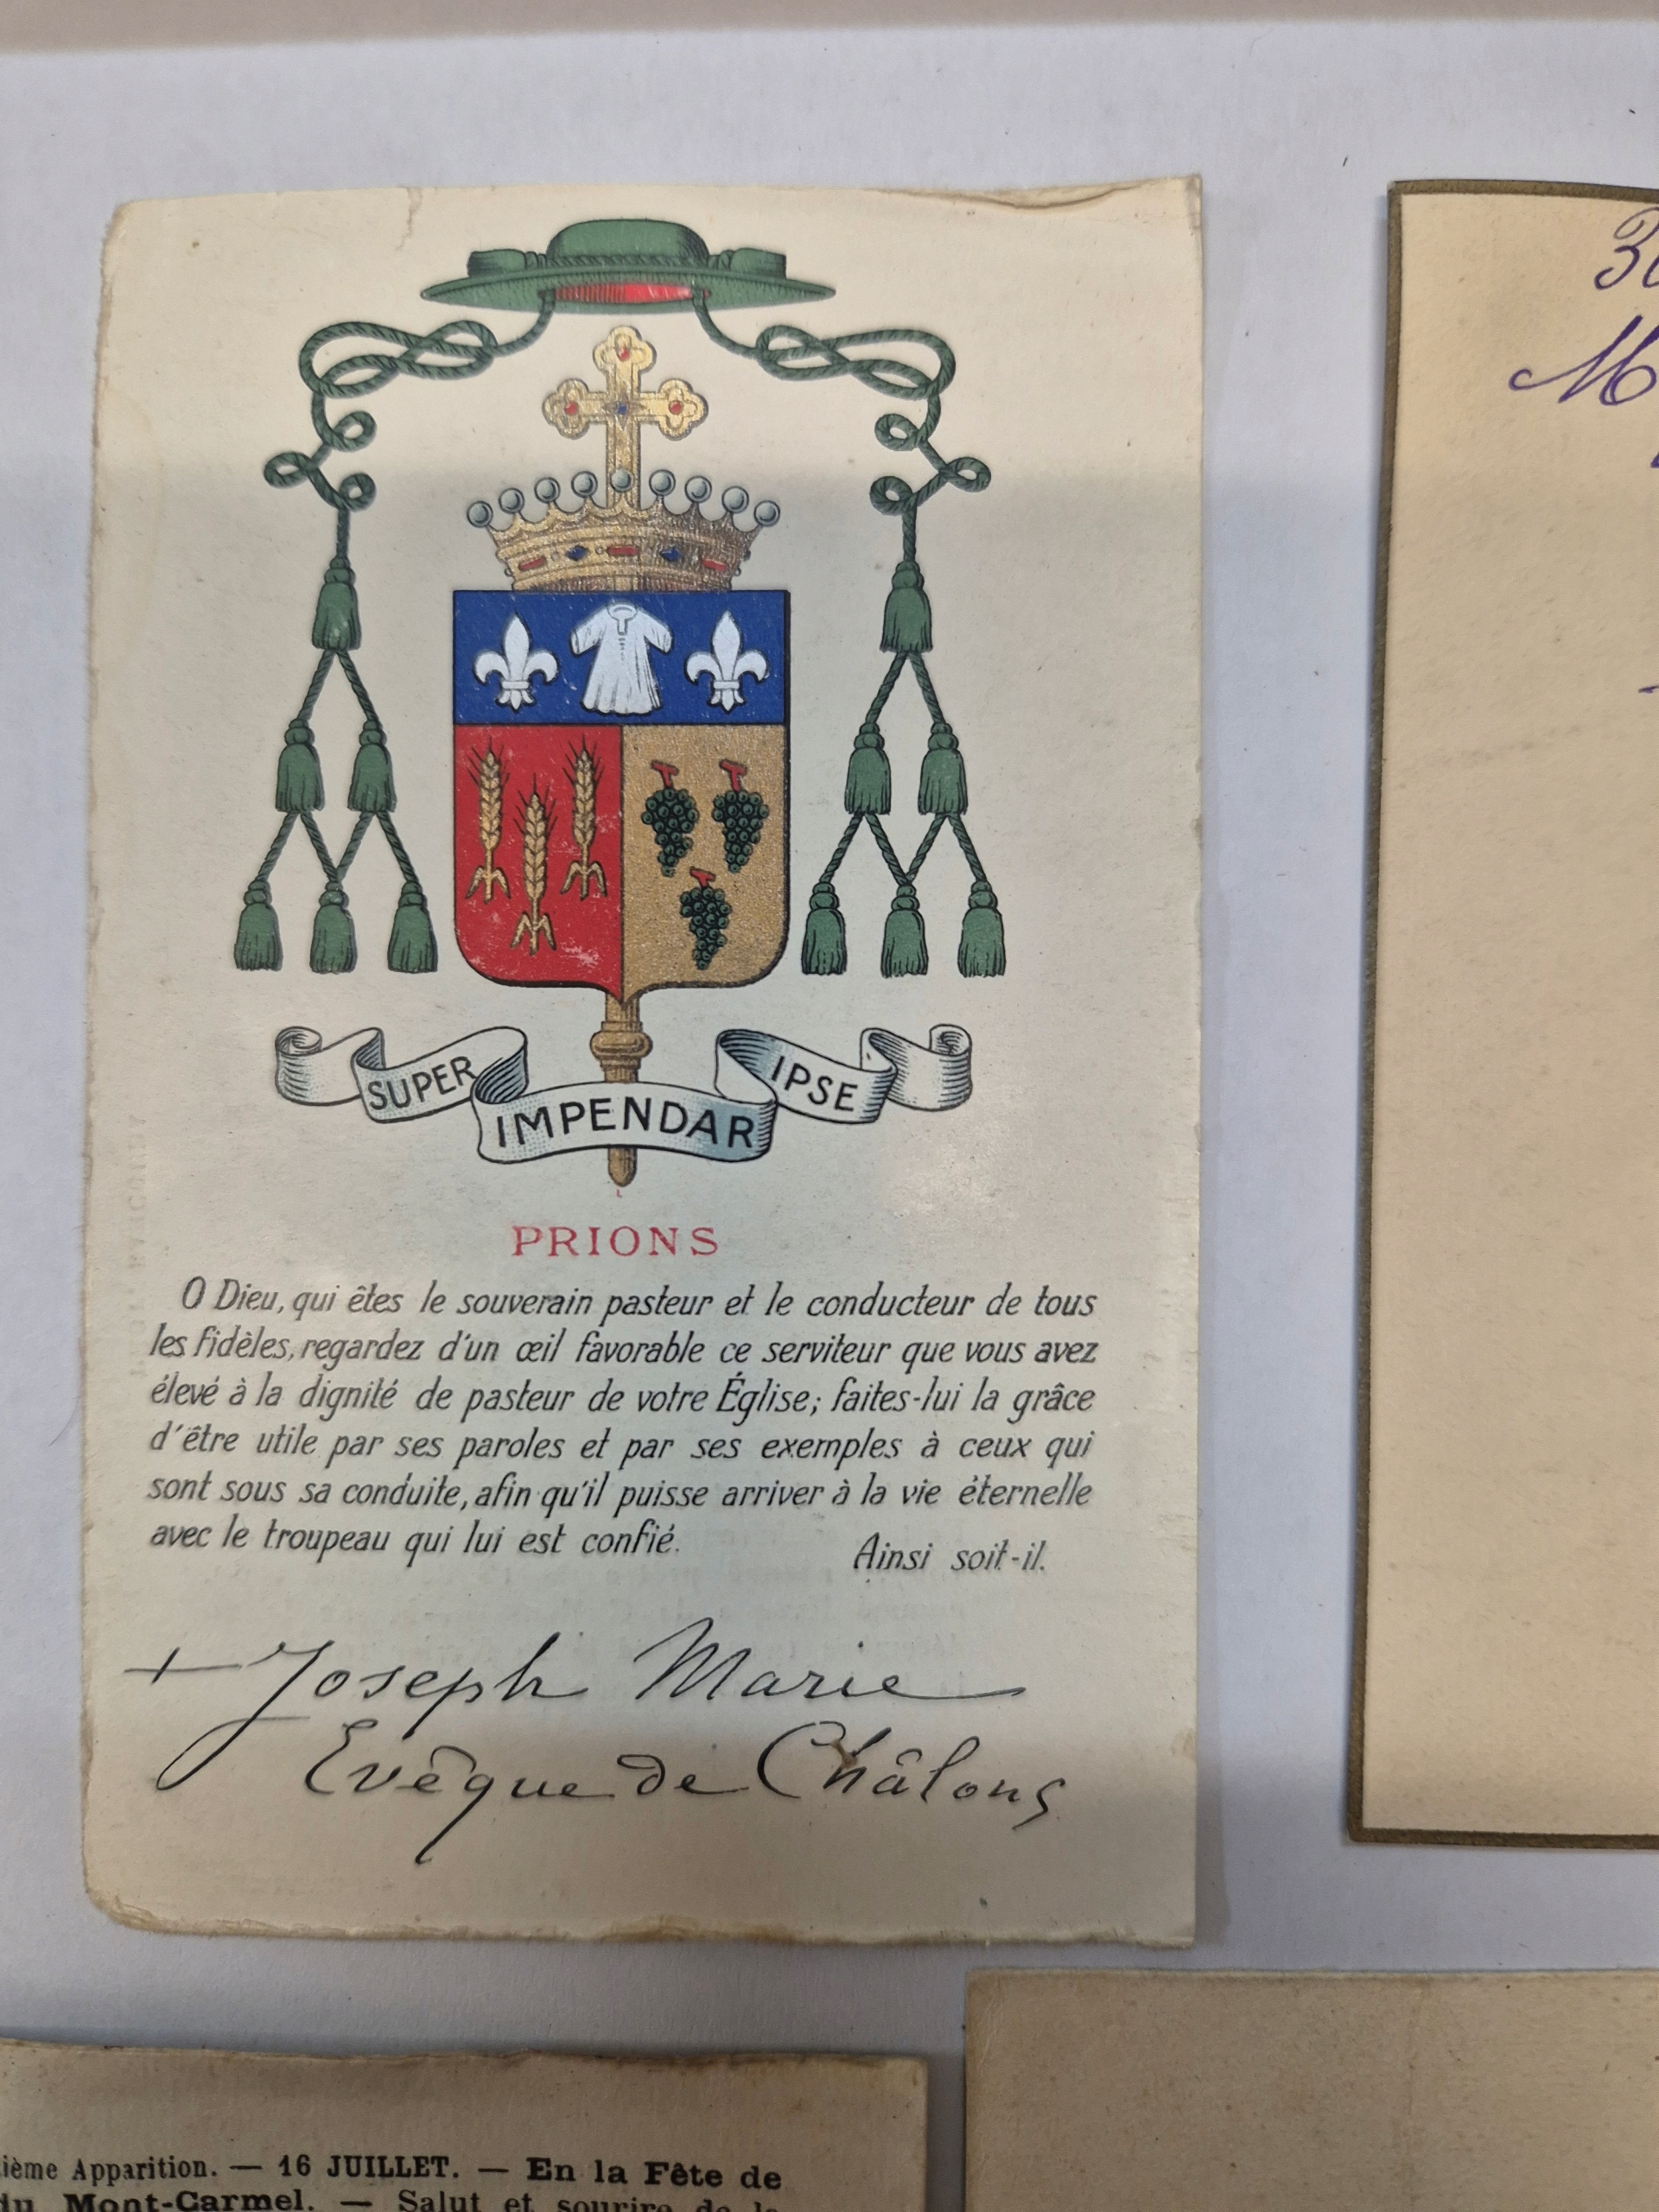 SUPER IMPENDAR IPSE
PRIONS
O Dieu, qui êtes le souverain pasteur et le conducteur de tous
les fidèles, regardez d'un œil favorable ce serviteur que vous avez
élevé à la dignité de pasteur de votre Église; faites-lui la grâce
d'être utile par ses paroles et par ses exemples à ceux qui
sont sous sa conduite, afin qu'il puisse arriver à la vie éternelle
avec le troupeau qui lui est confié.
Ainsi soit-il.
+ Joseph Marie
Evêque de Châlons
ième Apparition. — 16 JUILLET. — En la Fête de
du Mont-Carmel. — Salut et sourire de la